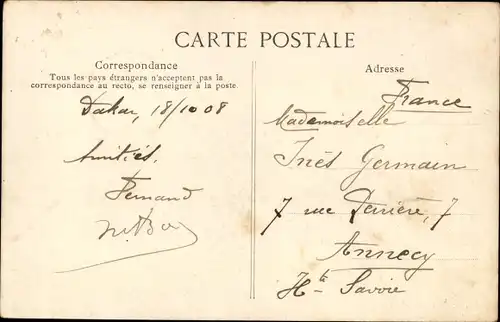 CARTE POSTALE
Correspondance
Tous les pays étrangers n'acceptent pas la
correspondance au recto, se renseigner à la poste.
Dakar, 18/10 08
Amitiés.
Fernand
Adresse
France
Mademoiselle
Inès Germain
7 rue Perrière, 7
Annecy
Hte Savoie